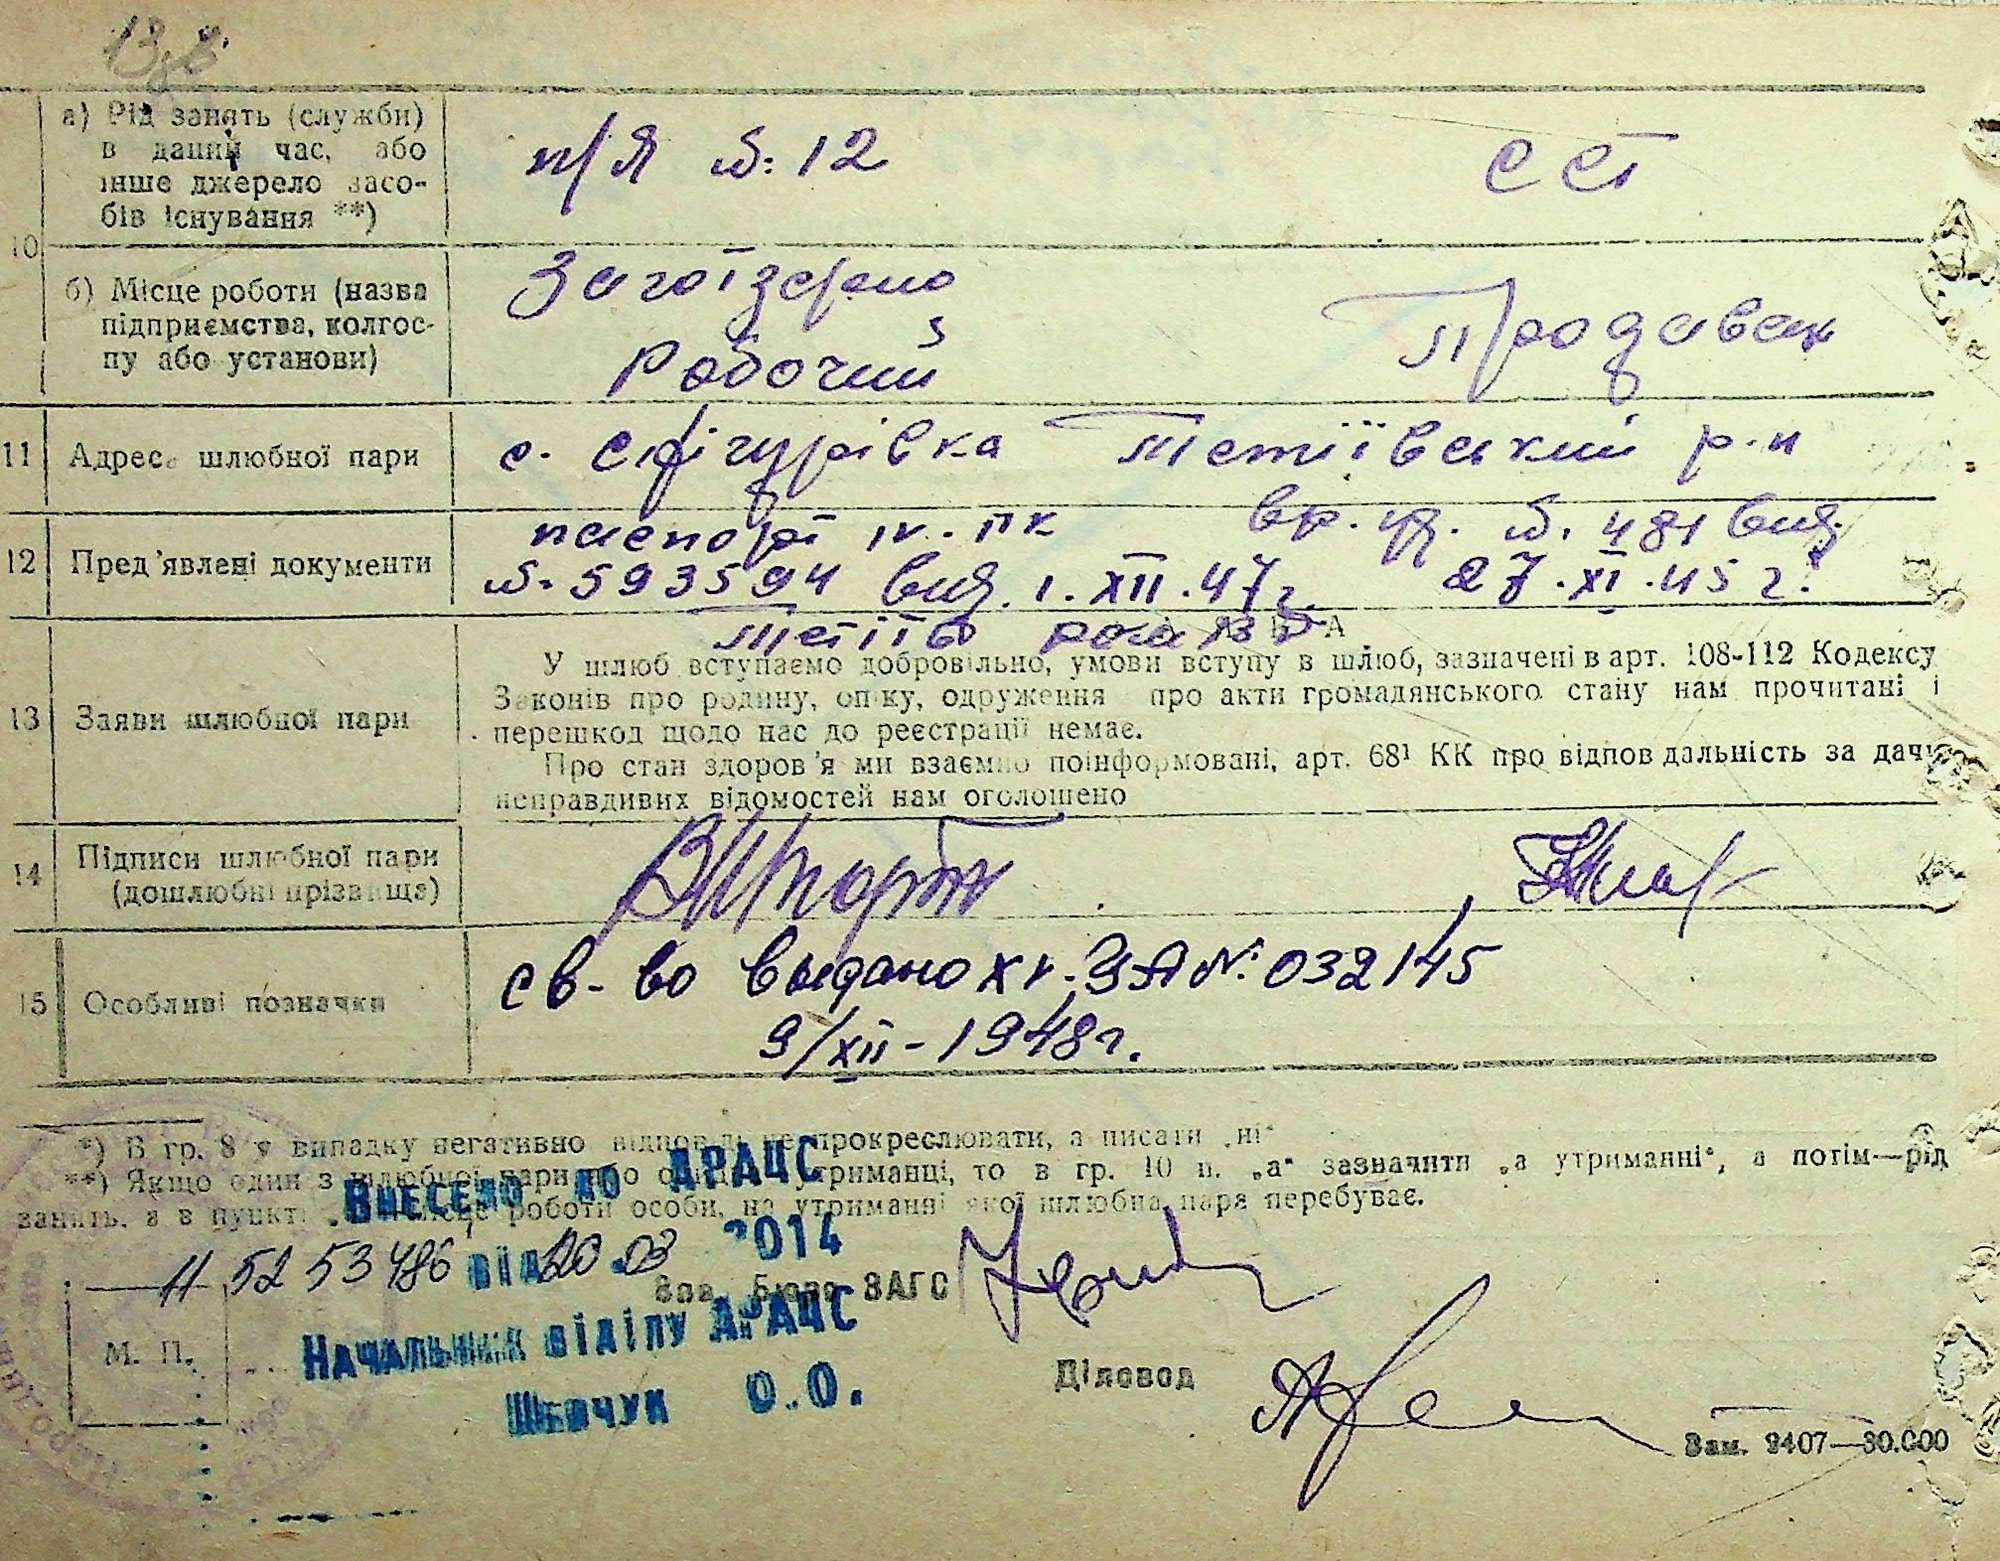 10
а) Рід занять (служби)
в даний час, або
інше джерело засо-
бів існування **)
п/я №: 12
ССТ
б) Місце роботи (назва
підприємства, колгос-
пу або установи)
Заготзерно
Рабочий
Продавец
11 Адреса шлюбної пари
с. Сфігурівка Тетіївський р-н
12 Пред'явлені документи
паспорт IV-ПК
№ 593594 вид. 1.XII.47г.
Тетіїв
вр. уд. №. 481 вид.
27.XI.45г.
13 Заяви шлюбної пари
У шлюб вступаємо добровільно, умови вступу в шлюб, зазначені в арт. 108-112 Кодексу
Законів про родину, опіку, одруження про акти громадянського стану нам прочитані і
перешкод щодо нас до реєстрації немає.
Про стан здоров'я ми взаємно поінформовані, арт. 68¹ КК про відповідальність за дачу
неправдивих відомостей нам оголошено
14 Підписи шлюбної пари
(дошлюбні прізвища)
15 Особливі позначки
св-во выдано XV-ЗА №: 032145
9/XII-1948г.
*) В гр. 8 у випадку негативно відповіді не прокреслювати, а писати „ні“
**) Якщо один з шлюбної пари утриманці, то в гр. 10 п. „а“ зазначити „а утриманні“, а потім—рід
занять, а в пункті роботи особи, на утриманні якої шлюбна пара перебуває.
Внесено до ДРАЦС
11 5253486 від 20.03 2014
Зав. Бюро ЗАГС
Начальник відділу ДРАЦС
М. П.
Шевчук О.О.
Діловод
Зам. 9407—30.000